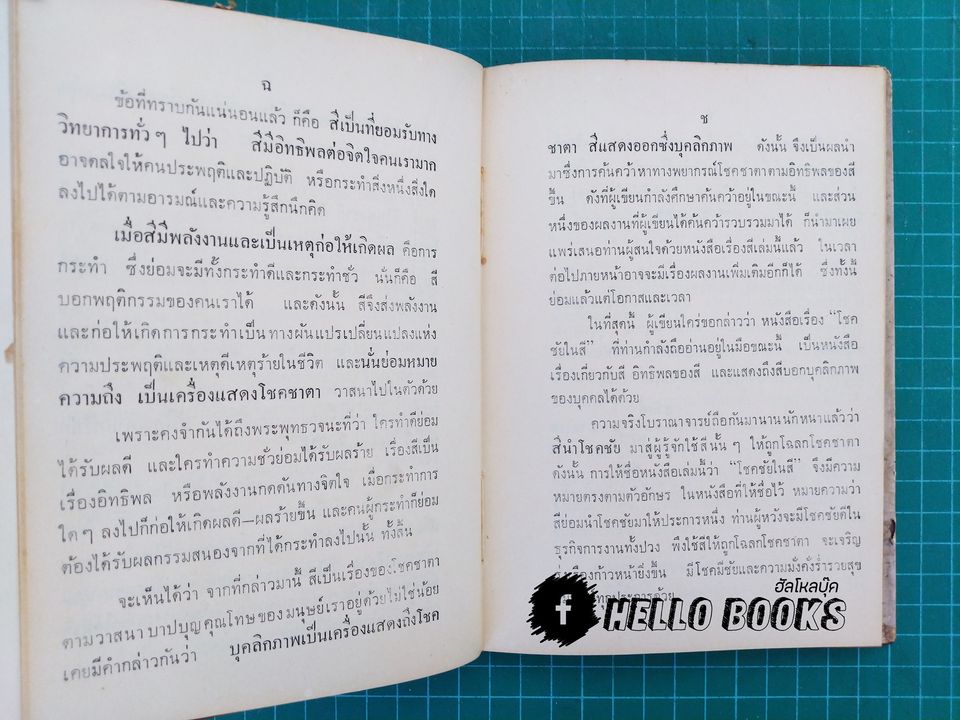 ฉ
ข้อที่ทราบกันแน่นอนแล้ว ก็คือ สีเป็นที่ยอมรับทาง
วิทยาการทั่ว ๆ ไปว่า สีมีอิทธิพลต่อจิตใจคนเรามาก
อาจดลใจให้คนประพฤติและปฏิบัติ หรือกระทำสิ่งหนึ่งสิ่งใด
ลงไปได้ตามอารมณ์และความรู้สึกนึกคิด
เมื่อสีมีพลังงานและเป็นเหตุก่อให้เกิดผล คือการ
กระทำ ซึ่งย่อมจะมีทั้งกระทำดีและกระทำชั่ว นั่นก็คือ สี
บอกพฤติกรรมของคนเราได้ และดังนั้น สีจึงส่งพลังงาน
และก่อให้เกิดการกระทำเป็นทางผันแปรเปลี่ยนแปลงแห่ง
ความประพฤติและเหตุดีเหตุร้ายในชีวิต และนั่นย่อมหมาย
ความถึง เป็นเครื่องแสดงโชคชาตา วาสนาไปในตัวด้วย
เพราะคงจำกันได้ถึงพระพุทธวจนะที่ว่า ใครทำดีย่อม
ได้รับผลดี และใครทำความชั่วย่อมได้รับผลร้าย เรื่องสีเป็น
เรื่องอิทธิพล หรือพลังงานกดดันทางจิตใจ เมื่อกระทำการ
ใด ๆ ลงไปก็ก่อให้เกิดผลดี–ผลร้ายขึ้น และคนผู้กระทำก็ย่อม
ต้องได้รับผลกรรมสนองจากที่ได้กระทำลงไปนั้น ทั้งสิ้น
จะเห็นได้ว่า จากที่กล่าวมานี้ สีเป็นเรื่องของโชคชาตา
ตามวาสนา บาปบุญ คุณโทษของมนุษย์เราอยู่ด้วยไม่ใช่น้อย
เคยมีคำกล่าวกันว่า บุคลิกภาพเป็นเครื่องแสดงถึงโชค
ช
ชาตา สีแสดงออกซึ่งบุคลิกภาพ ดังนั้น จึงเป็นผลนำ
มาซึ่งการค้นคว้าหาทางพยากรณ์โชคชาตาตามอิทธิพลของสี
ขึ้น ดังที่ผู้เขียนกำลังศึกษาค้นคว้าอยู่ในขณะนี้ และส่วน
หนึ่งของผลงานที่ผู้เขียนได้ค้นคว้ารวบรวมมาได้ ก็นำมาเผย
แพร่เสนอท่านผู้สนใจด้วยหนังสือเรื่องสีเล่มนี้แล้ว ในเวลา
ต่อไปภายหน้าอาจจะมีเรื่องผลงานเพิ่มเติมอีกก็ได้ ซึ่งทั้งนี้
ย่อมแล้วแต่โอกาสและเวลา
ในที่สุดนี้ ผู้เขียนใคร่ขอกล่าวว่า หนังสือเรื่อง “โชค
ชัยในสี” ที่ท่านกำลังถืออ่านอยู่ในมือขณะนี้ เป็นหนังสือ
เรื่องเกี่ยวกับสี อิทธิพลของสี และแสดงถึงสีบอกบุคลิกภาพ
ของบุคคลได้ด้วย
ความจริงโบราณาจารย์ถือกันมานานนักหนาแล้วว่า
สีนำโชคชัย มาสู่ผู้รู้จักใช้สีนั้น ๆ ให้ถูกโฉลกโชคชาตา
ดังนั้น การให้ชื่อหนังสือเล่มนี้ว่า “โชคชัยในสี” จึงมีความ
หมายตรงตามตัวอักษร ในหนังสือที่ให้ชื่อไว้ หมายความว่า
สีย่อมนำโชคชัยมาให้ประการหนึ่ง ท่านผู้หวังจะมีโชคชัยดีใน
ธุรกิจการงานทั้งปวง พึงใช้สีให้ถูกโฉลกโชคชาตา จะเจริญ
รุ่งเรืองก้าวหน้ายิ่งขึ้น มีโชคมีชัยและความมั่งคั่งร่ำรวยสุข
ทุกประการด้วย
ฮัลโหลบุ๊ค
f HELLO BOOKS